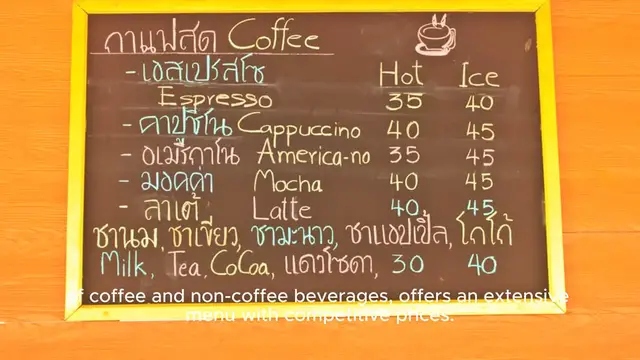 กาแฟสด Coffee
- เอสเปรสโซ Hot Ice
Espresso 35 40
- คาปูชิโน Cappuccino 40 45
- อเมริกาโน America-no 35 45
- มอคค่า Mocha 40 45
- ลาเต้ Latte 40 45
ชานม, ชาเขียว, ชามะนาว, ชาแอปเปิ้ล, โกโก้
Milk, Tea, CoCoa, แดงโซดา, 30 40
of coffee and non-coffee beverages, offers an extensive
menu with competitive prices.